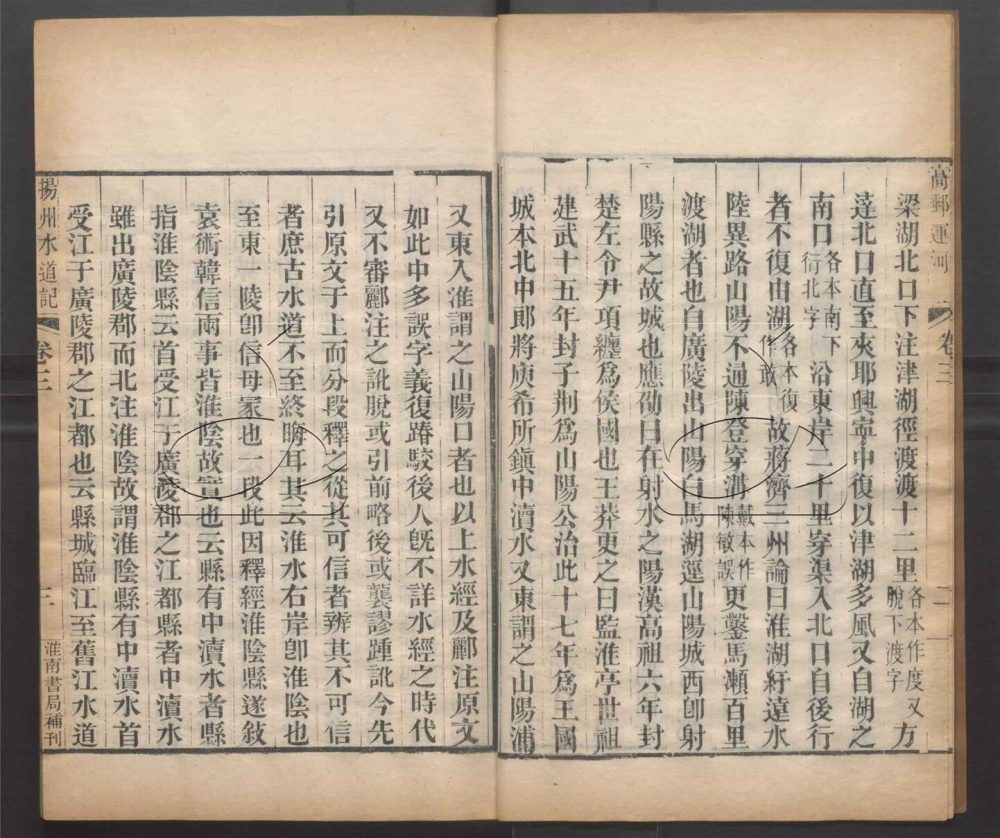 高郵運河 卷三 二
梁湖北口下注津湖徑渡渡十二里各本作度又脫下渡字方
達北口直至夾耶興寧中復以津湖多風又自湖之
南口各本南下衍北字沿東岸二十里穿渠入北口自後行
者不復由湖各本復作敢故蔣濟三州論曰淮湖紆遠水
陸異路山陽不通陳登穿溝戴本作陳敏誤更鑿馬瀨百里
渡湖者也自廣陵出山陽白馬湖逕山陽城西卽射
陽縣之故城也應劭曰在射水之陽漢高祖六年封
楚左令尹項纏爲侯國也王莽更之曰監淮亭世祖
建武十五年封子荆爲山陽公治此十七年爲王國
城本北中郎將庾希所鎮中瀆水又東謂之山陽浦
又東入淮謂之山陽口者也以上水經及酈注原文
如此中多誤字義復踳駁後人旣不詳水經之時代
又不審酈注之訛脫或引前略後或襲謬踵訛今先
引原文于上而分段釋之從其可信者辨其不可信
者庶古水道不至終晦耳其云淮水右岸卽淮陰也
至東一陵卽信母冢也一段此因釋經淮陰縣遂敘
袁術韓信兩事皆淮陰故實也云縣有中瀆水者縣
指淮陰縣云首受江于廣陵郡之江都縣者中瀆水
雖出廣陵郡而北注淮陰故謂淮陰縣有中瀆水首
受江于廣陵郡之江都也云縣城臨江至舊江水道
揚州水道記 卷三 淮南書局補刊